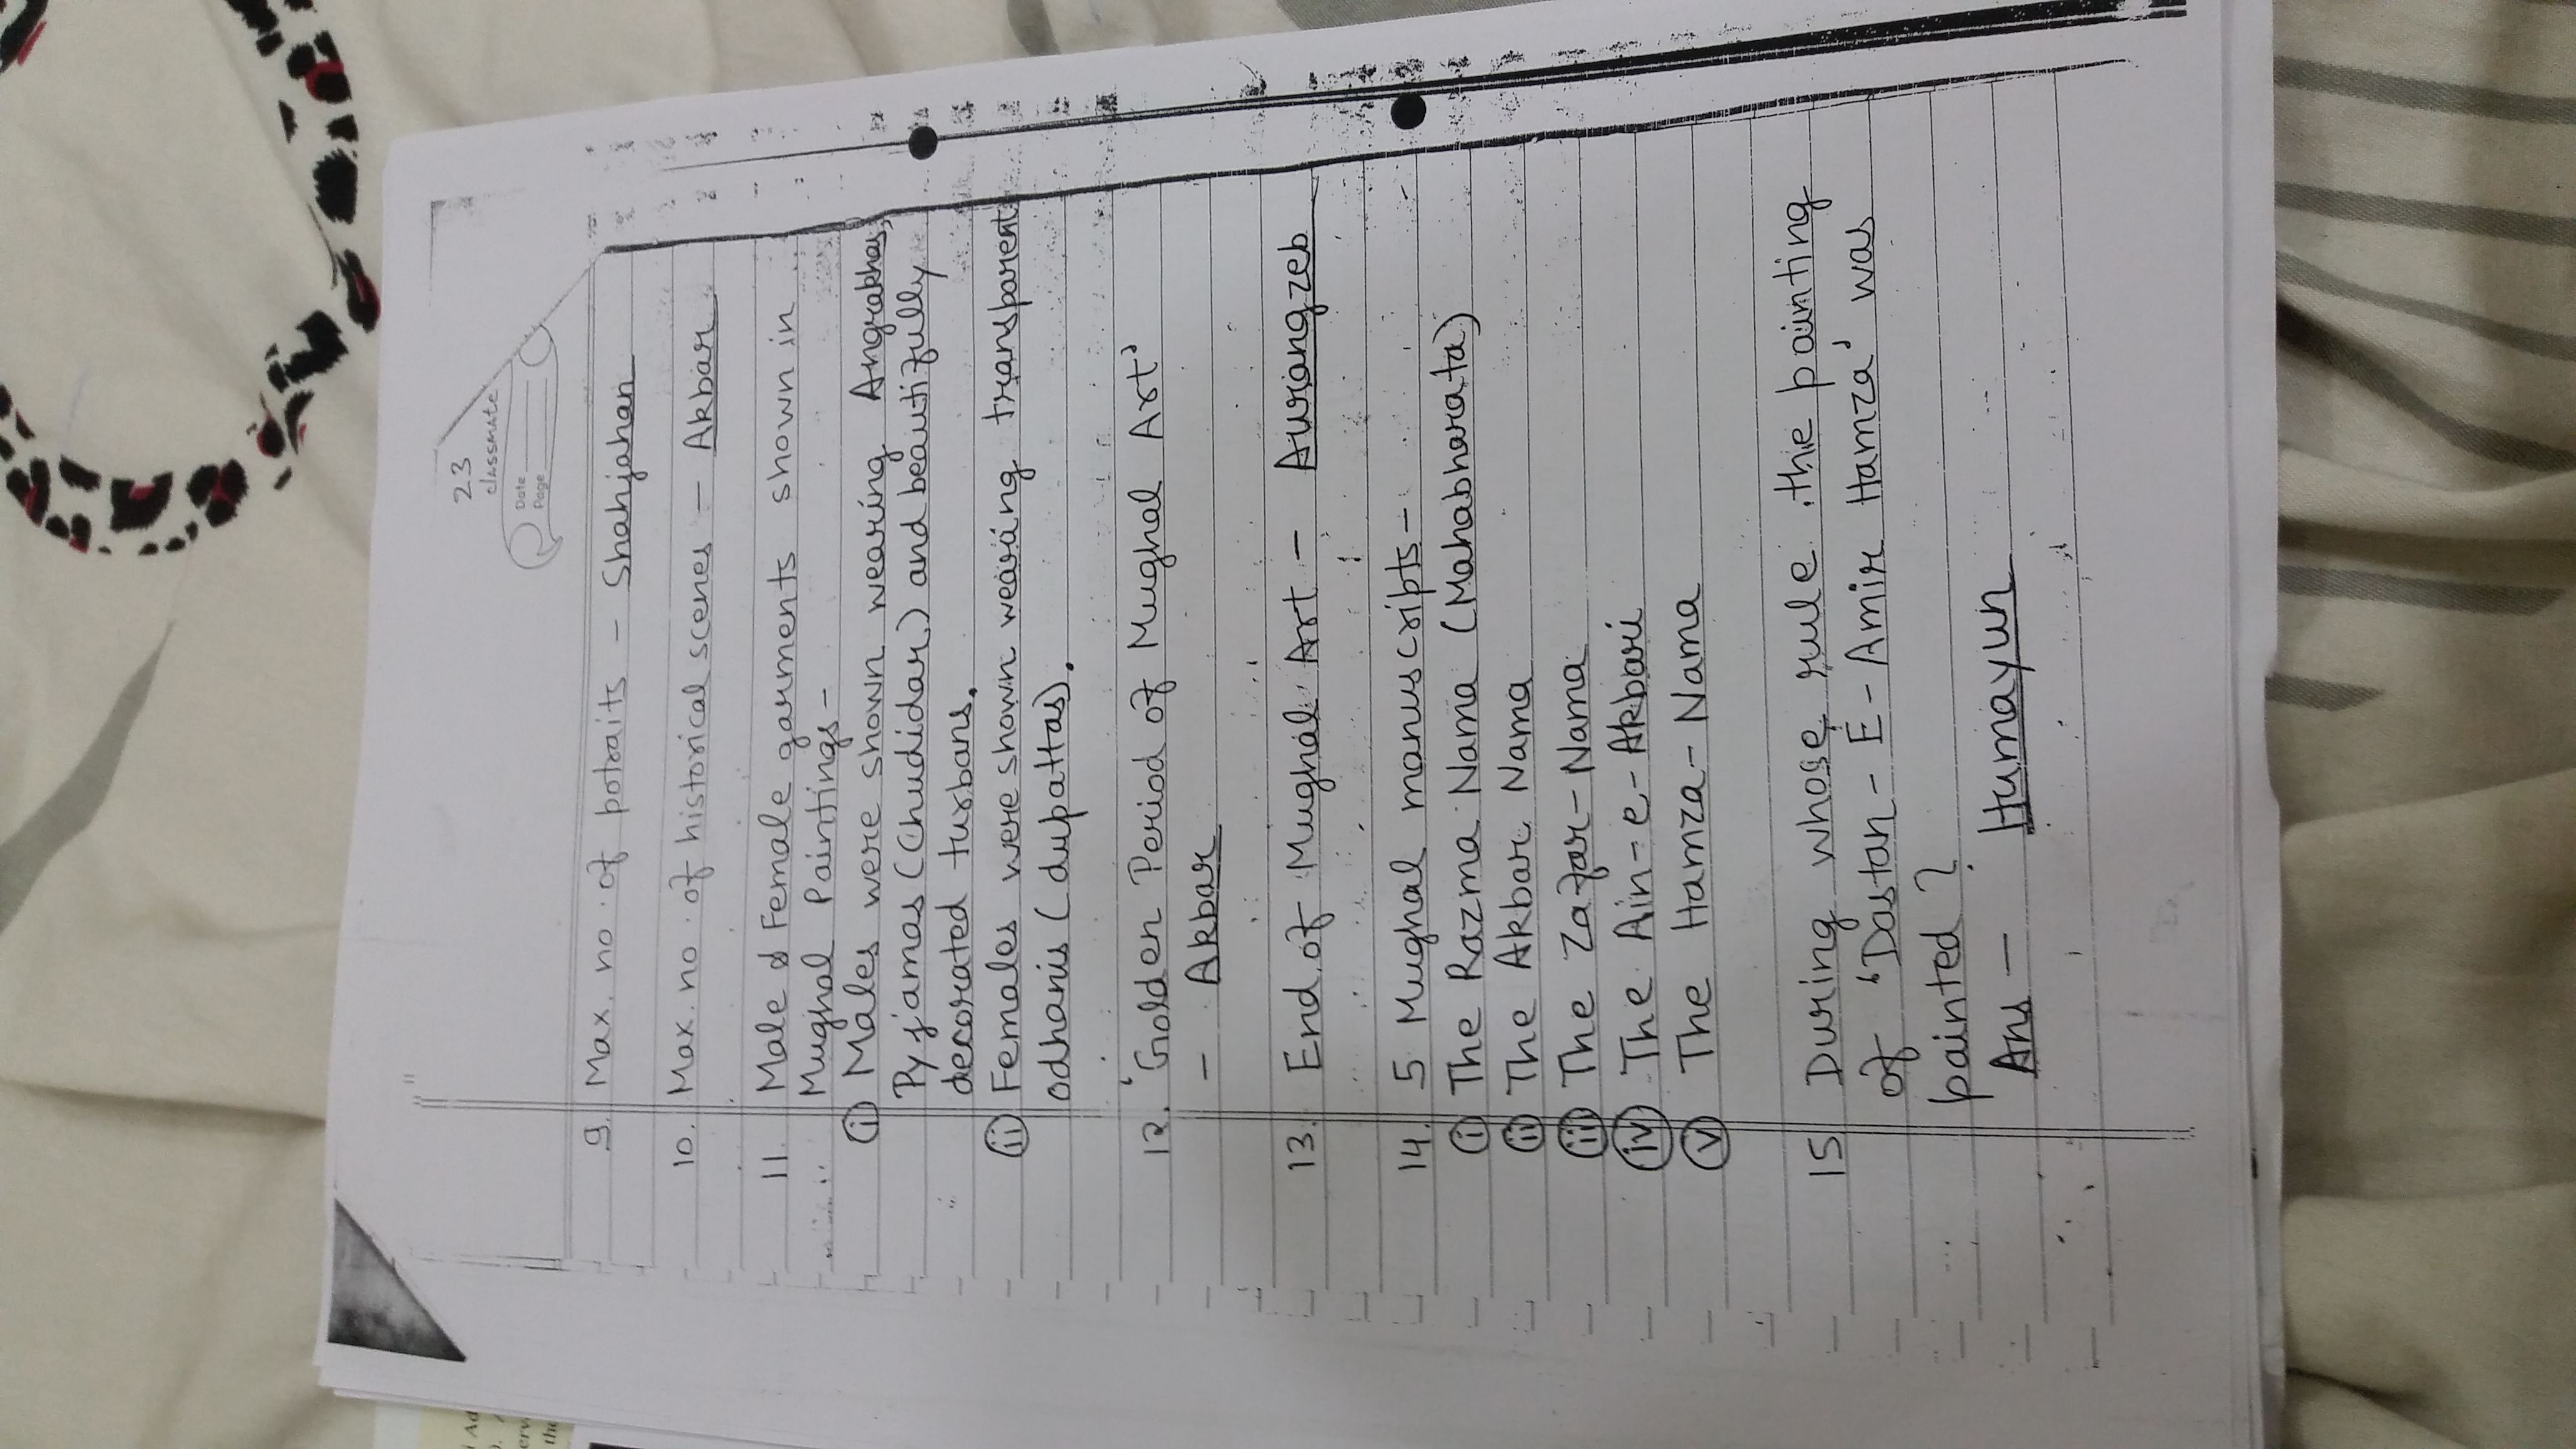 23
classmate
Date
Page
9. Max. no. of potraits - Shahjahan
10. Max. no. of historical scenes - Akbar
11. Male & Female garments shown in
Mughal Paintings -
(i) Males were shown wearing Angrakhas,
Pyjamas (Chudidar) and beautifully
decorated turbans.
(ii) Females were shown wearing transparent
odhanis (dupattas).
12. 'Golden Period of Mughal Art'
- Akbar
13. End of Mughal Art - Aurangzeb
14. 5 Mughal manuscripts -
(i) The Razma Nama (Mahabharata)
(ii) The Akbar Nama
(iii) The Zafar-Nama
(iv) The Ain-e-Akbari
(v) The Hamza-Nama
15 During whose rule the painting
of 'Dastan-E-Amir Hamza' was
painted?
Ans - Humayun